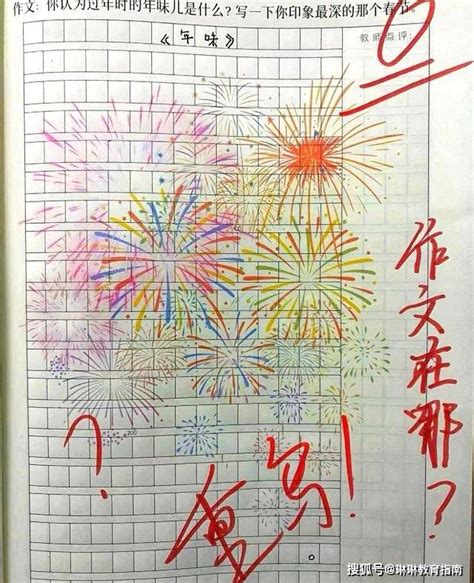 作文：你认为过年时的年味儿是什么？写一下你印象最深的那个春节。
《年味》
教师点评：
0
作文在哪？
？
重写！
。
搜狐号@琳琳教育指南